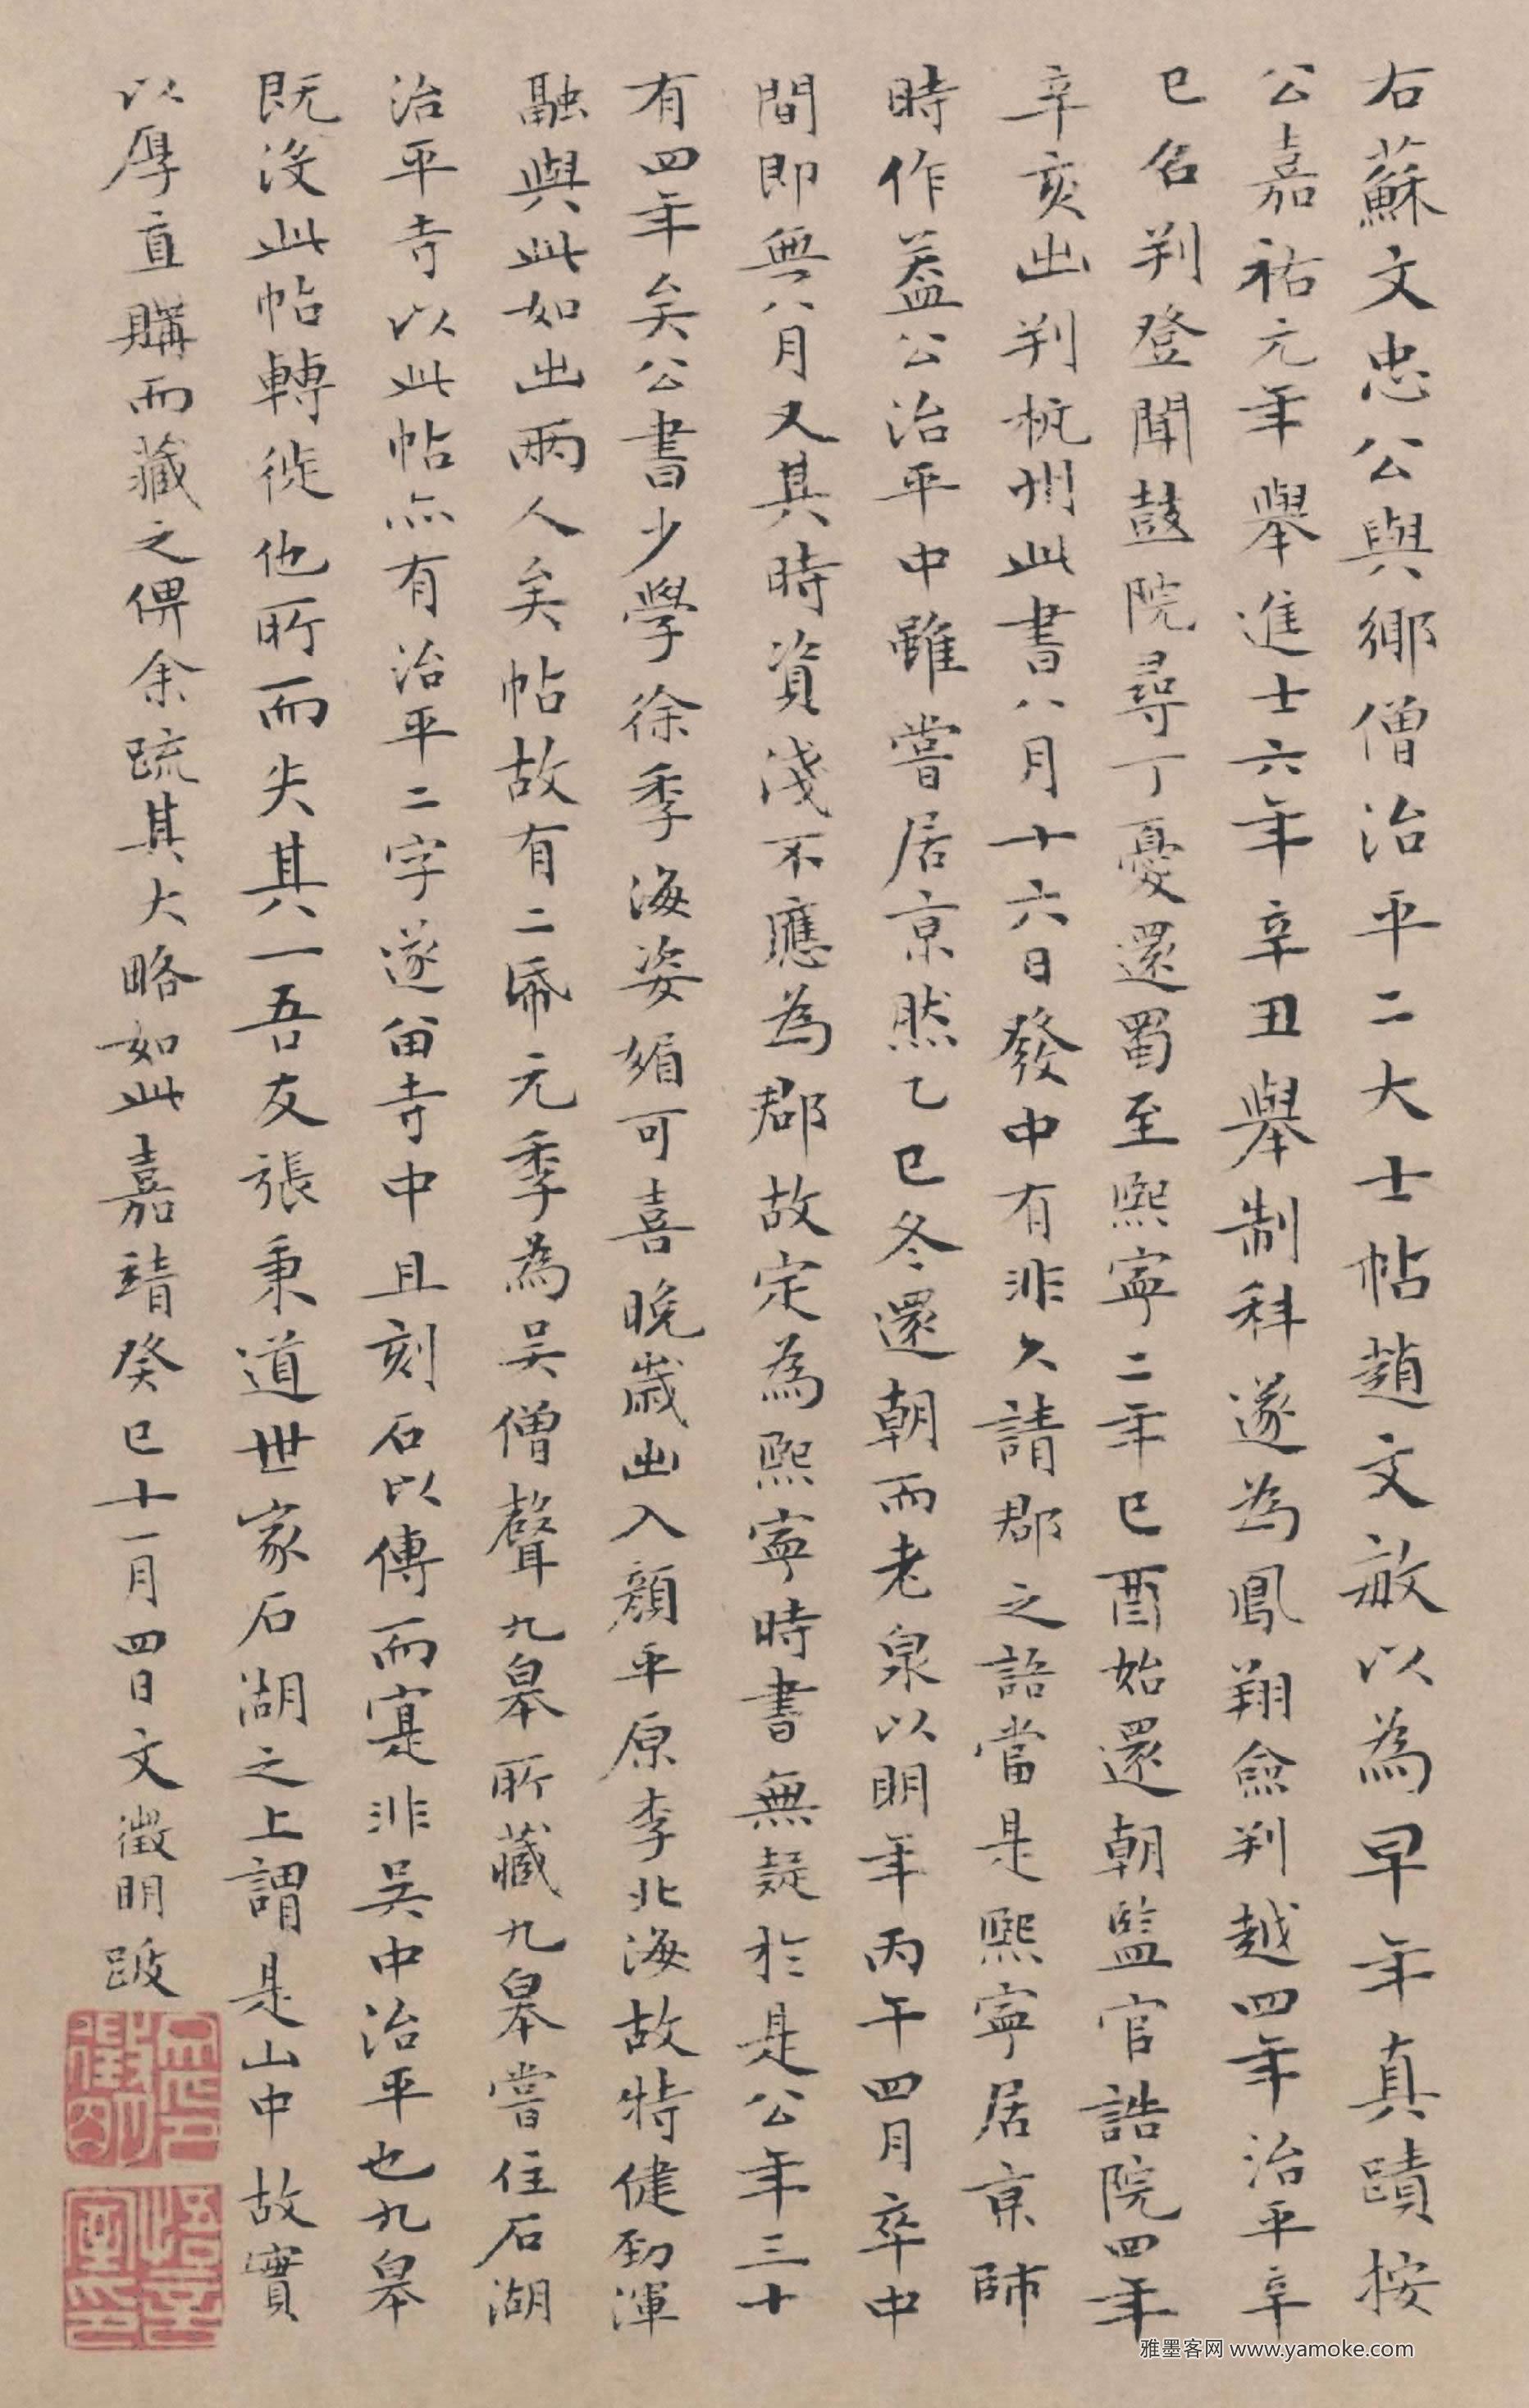 右蘇文忠公與鄉僧治平二大士帖趙文敏以為早年真蹟按
公嘉祐元年舉進士六年辛丑舉制科遂為鳳翔僉判越四年治平辛
巳名判登聞鼓院尋丁憂還蜀至熙寧二年己酉始還朝監官誥院四年
辛亥出判杭州此書八月十六日發中有非久請郡之語當是熙寧居京師
時作蓋公治平中雖嘗居京然乙巳冬還朝而老泉以明年丙午四月卒中
間即無八月又其時資淺不應為郡故定為熙寧時書無疑於是公年三十
有四年矣公書少學徐季海姿媚可喜晚歲出入顏平原李北海故特健勁渾
融與此如出兩人矣帖故有二帋元季為吳僧聲九皋所藏九皋嘗住石湖
治平寺以此帖亦有治平二字遂留寺中且刻石以傳而寔非吳中治平也九皋
既沒此帖轉徙他所而失其一吾友張秉道世家石湖之上謂是山中故實
以厚直購而藏之俾余疏其大略如此嘉靖癸巳十一月四日文徵明跋
雅墨客网 www.yamoke.com